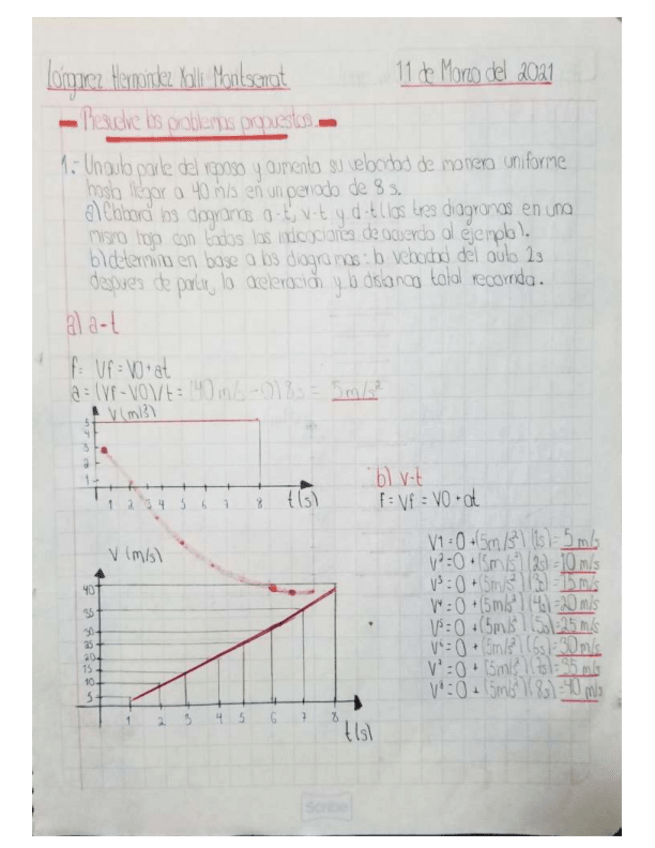 Lóngarez Hernández Xalli Montserrat
11 de Marzo del 2021
Resuelve los problemas propuestos.
1.- Un auto parte del reposo y aumenta su velocidad de manera uniforme
hasta llegar a 40 m/s en un periodo de 8 s.
a) Elabora los diagramas a-t, v-t y d-t (los tres diagramas en una
misma hoja con todas las indicaciones de acuerdo al ejemplo).
b) determina en base a los diagramas: la velocidad del auto 2s
despues de partir, la aceleración y la distancia total recorrida.
a) a-t
f= Vf = VO+at
a = (Vf - VO)/t = (40 m/s - 0) 8s = 5m/s²
V (m/s)
5
4
3
2
1
1 2 3 4 5 6 7 8 t(s)
b) v-t
f= Vf = VO + at
V1 = 0 + (5m/s²) (1s) = 5 m/s
V² = 0 + (5m/s²) (2s) = 10 m/s
V³ = 0 + (5m/s²) (3s) = 15 m/s
V⁴ = 0 + (5m/s²) (4s) = 20 m/s
V⁵ = 0 + (5m/s²) (5s) = 25 m/s
V⁶ = 0 + (5m/s²) (6s) = 30 m/s
V⁷ = 0 + (5m/s²) (7s) = 35 m/s
V⁸ = 0 + (5m/s²) (8s) = 40 m/s
V (m/s)
40
35
30
25
20
15
10
5
1 2 3 4 5 6 7 8
t(s)
Scribe